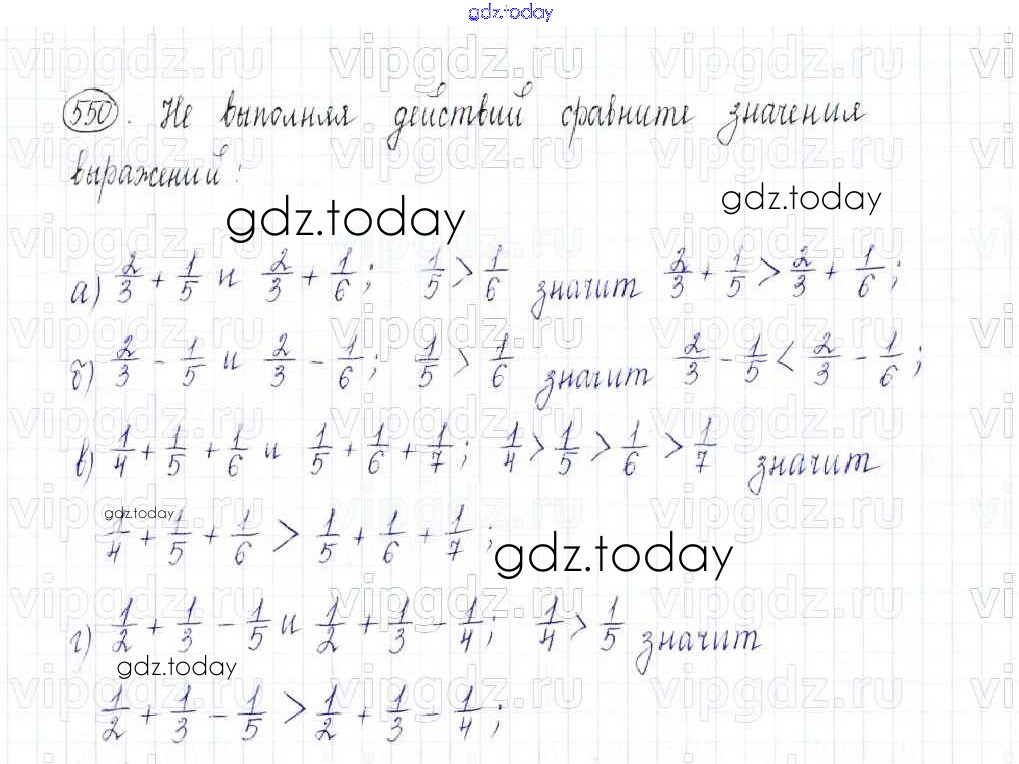 gdz.today
550. Не выполняя действий сравните значения
выражений:
gdz.today
gdz.today
а) 2/3 + 1/5 и 2/3 + 1/6; 1/5 > 1/6 значит 2/3 + 1/5 > 2/3 + 1/6;
б) 2/3 - 1/5 и 2/3 - 1/6; 1/5 > 1/6 значит 2/3 - 1/5 < 2/3 - 1/6;
в) 1/4 + 1/5 + 1/6 и 1/5 + 1/6 + 1/7; 1/4 > 1/5 > 1/6 > 1/7 значит
gdz.today
1/4 + 1/5 + 1/6 > 1/5 + 1/6 + 1/7;
gdz.today
г) 1/2 + 1/3 - 1/5 и 1/2 + 1/3 - 1/4; 1/4 > 1/5 значит
gdz.today
1/2 + 1/3 - 1/5 > 1/2 + 1/3 - 1/4;
vipgdz.ru